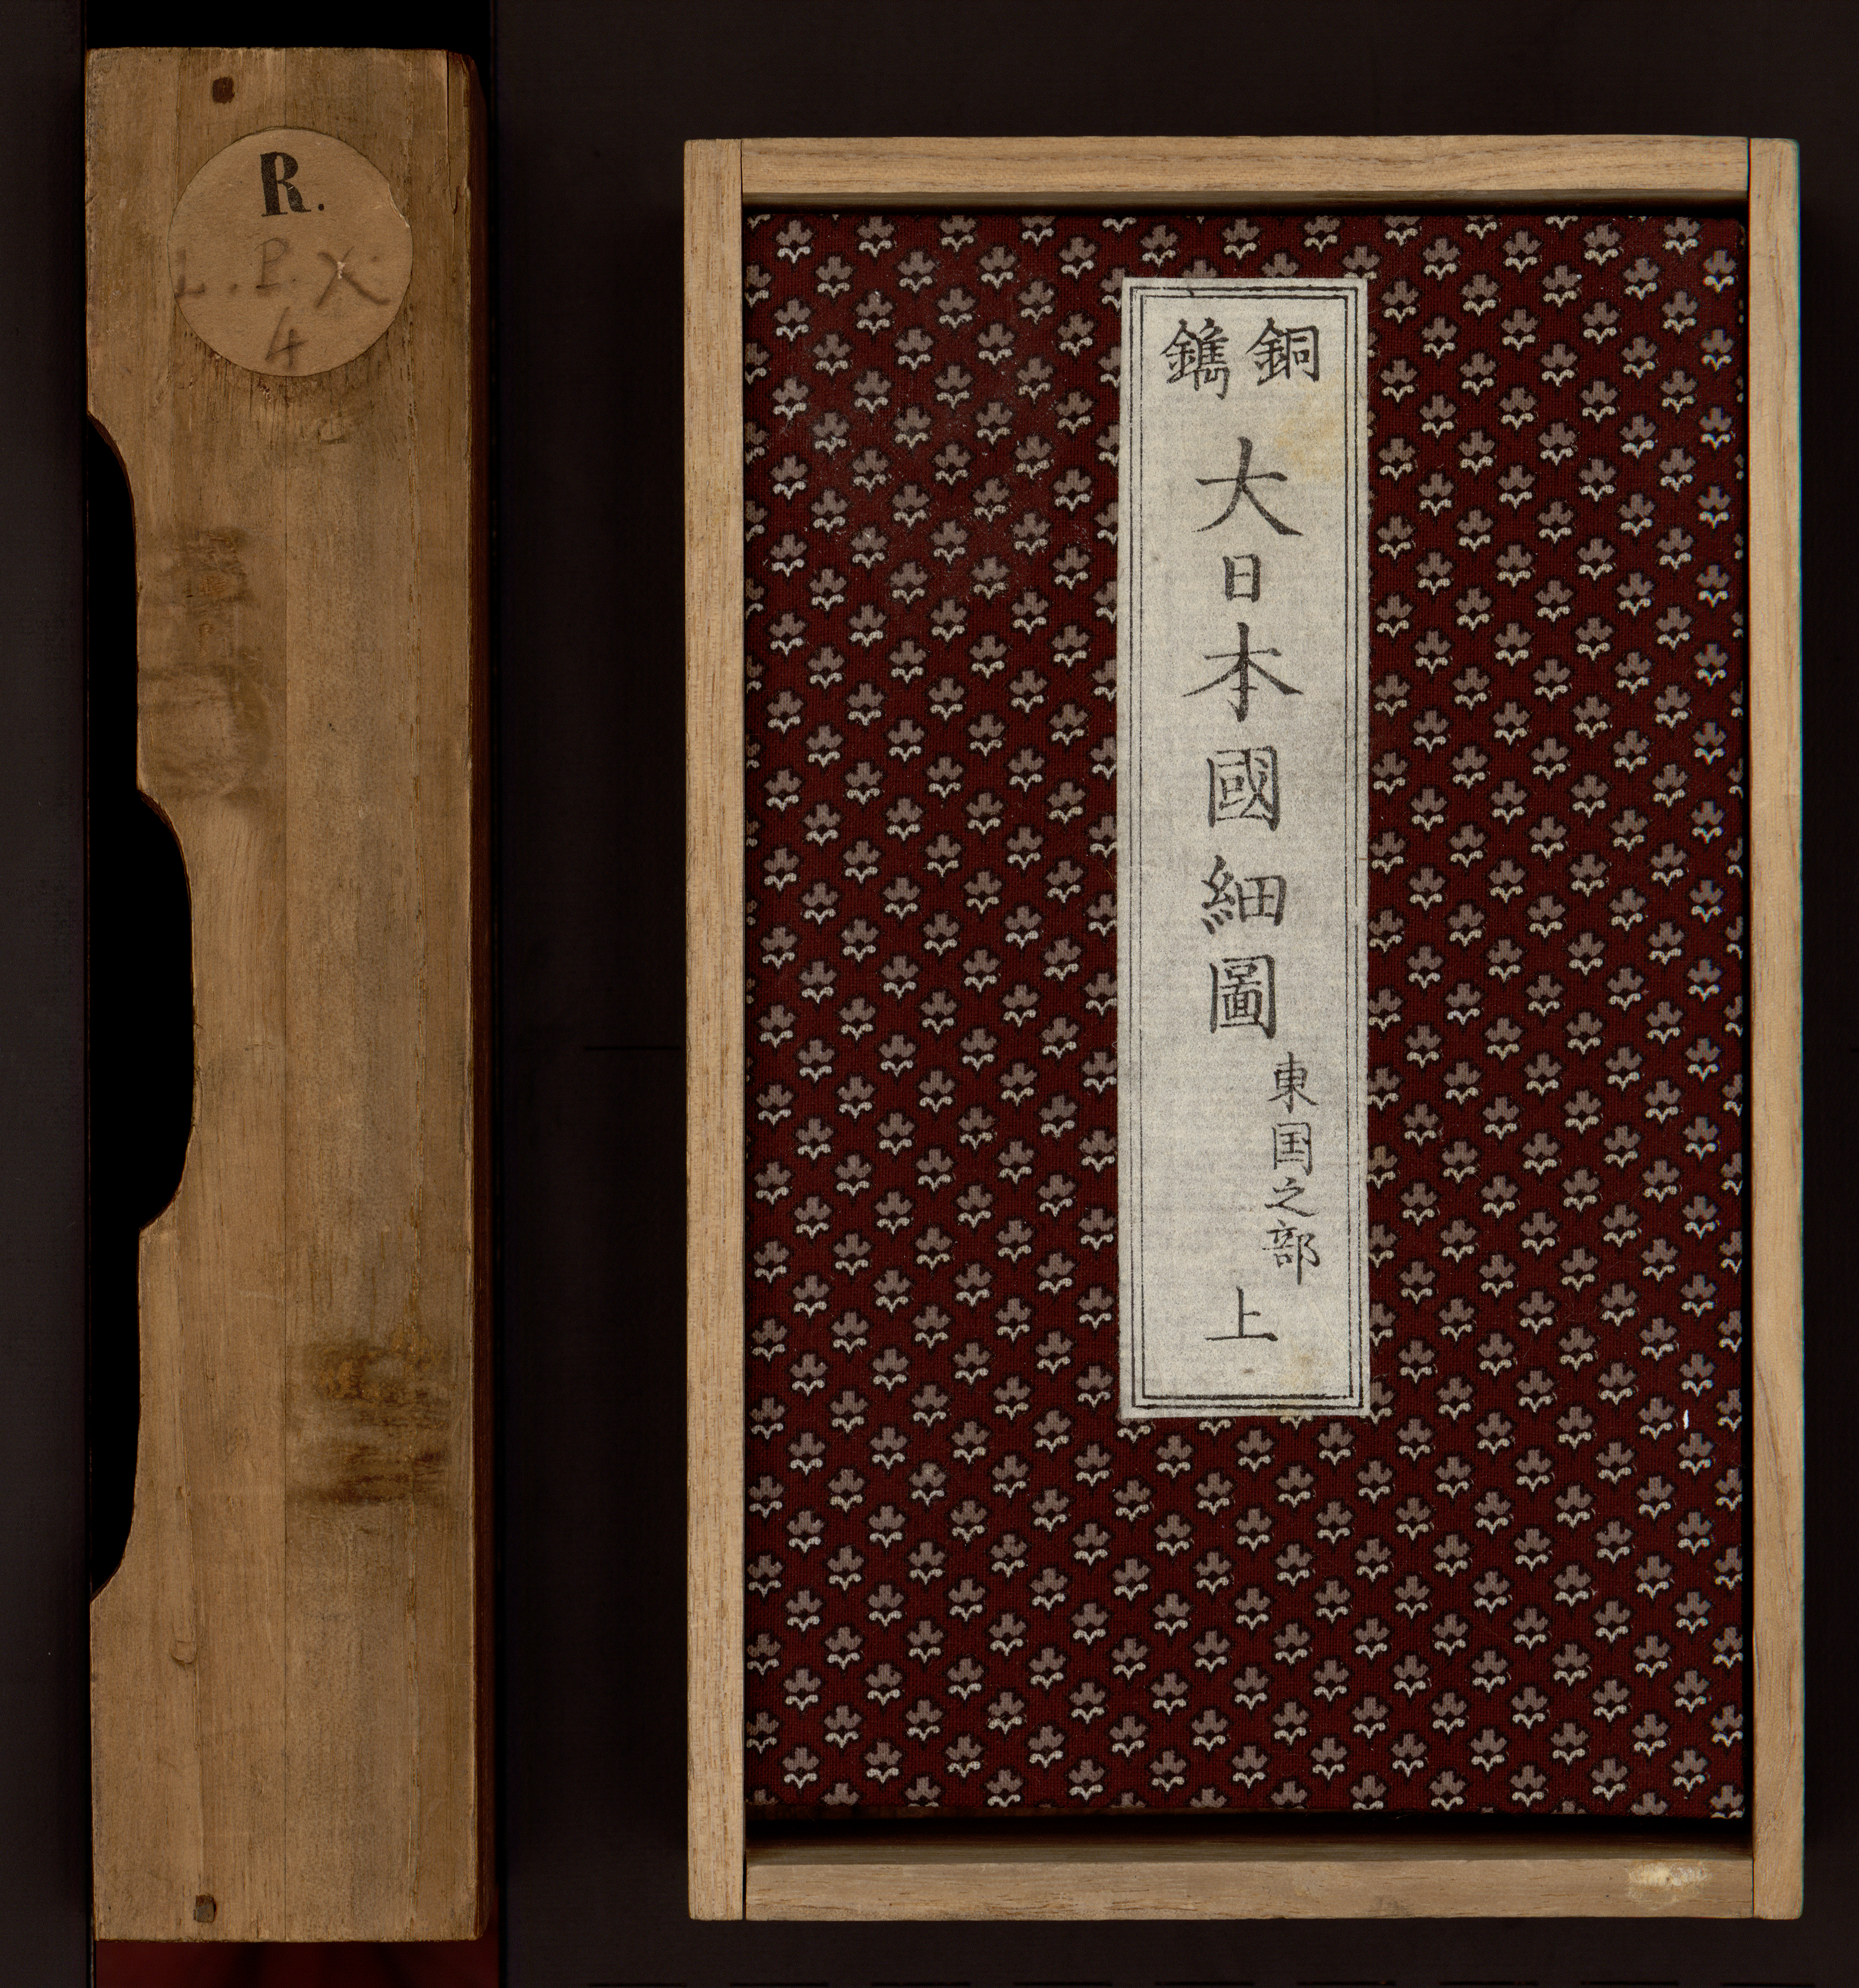 R.
L.P.X
4
銅鐫
大日本國細圖
東国之部
上